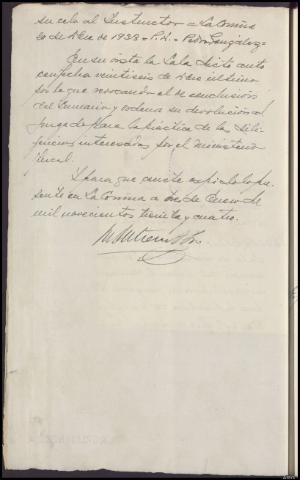 su cola al Instructor = La Coruña
20 de Dbre de 1933 = P.H. = Pedro González=
En su vista la Sala dictó auto
con fecha veintiseis de
por la que revocando el de conclusión
del Sumario y ordena su devolución al
Juzgado para la práctica de las dili-
gencias interesadas por el Ministerio
fiscal.
Y para que conste expido la pre-
sente en La Coruña a tres de Enero de
mil novecientos treinta y cuatro.